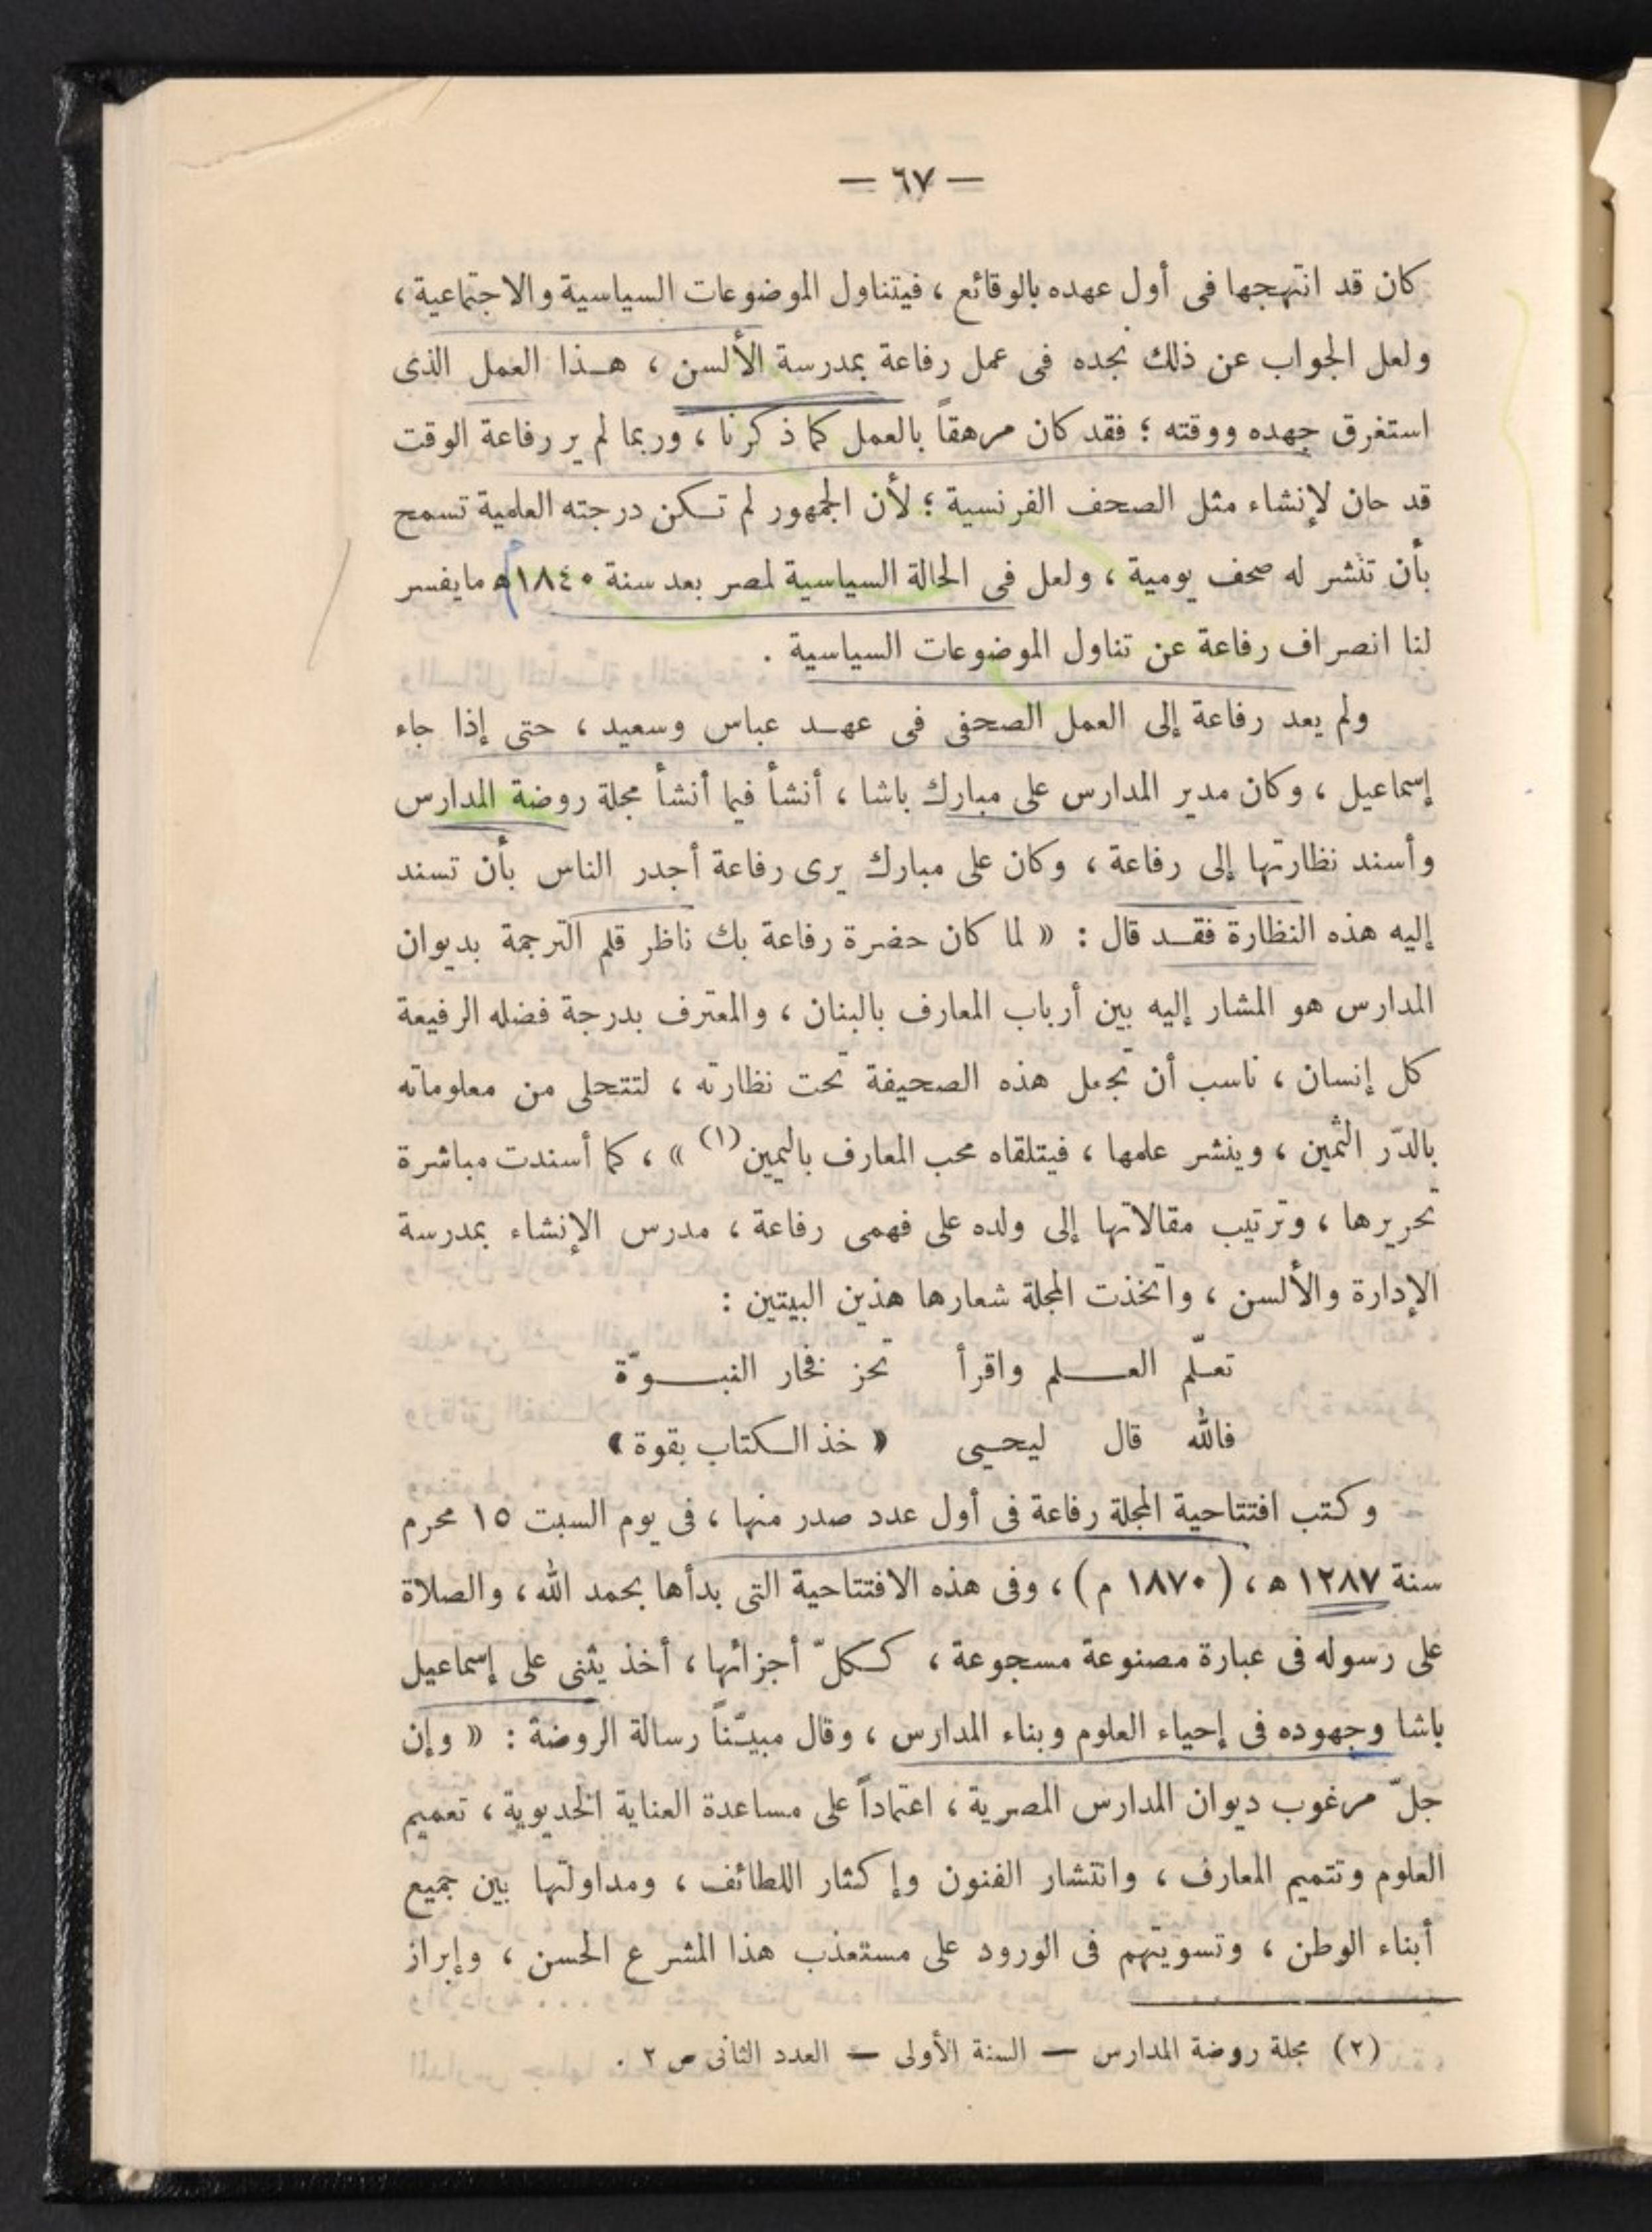 — ٦٧ —
كان قد انتهجها فى أول عهده بالوقائع ، فيتناول الموضوعات السياسية والاجتماعية ،
ولعل الجواب عن ذلك نجده فى عمل رفاعة بمدرسة الألسن ، هذا العمل الذى
استغرق جهده ووقته ؛ فقد كان مرهقاً بالعمل كما ذكرنا ، وربما لم ير رفاعة الوقت
قد حان لإنشاء مثل الصحف الفرنسية ؛ لأن الجمهور لم تكن درجته العلمية تسمح
بأن تنشر له صحف يومية ، ولعل فى الحالة السياسية لمصر بعد سنة ١٨٤٠ ه ما يفسر
لنا انصراف رفاعة عن تناول الموضوعات السياسية .
ولم يعد رفاعة إلى العمل الصحفى فى عهد عباس وسعيد ، حتى إذا جاء
إسماعيل ، وكان مدير المدارس على مبارك باشا ، أنشأ فيما أنشأ مجلة روضة المدارس
وأسند نظارتها إلى رفاعة ، وكان على مبارك يرى رفاعة أجدر الناس بأن تسند
إليه هذه النظارة فقد قال : « لما كان حضرة رفاعة بك ناظر قلم الترجمة بديوان
المدارس هو المشار إليه بين أرباب المعارف بالبنان ، والمعترف بدرجة فضله الرفيعة
كل إنسان ، ناسب أن تجعل هذه الصحيفة تحت نظارته ، لتتحلى من معلوماته
بالدّر الثمين ، وينشر علمها ، فيتلقاه محب المعارف باليمين(١) » ، كما أسندت مباشرة
تحريرها ، وترتيب مقالاتها إلى ولده على فهمى رفاعة ، مدرس الإنشاء بمدرسة
الإدارة والألسن ، واتخذت المجلة شعارها هذين البيتين :
تعلّم العلم واقرأ تحز فخار النبوّة
فالله قال ليحيى « خذ الكتاب بقوة »
وكتب افتتاحية المجلة رفاعة فى أول عدد صدر منها ، فى يوم السبت ١٥ محرم
سنة ١٢٨٧ ه ، ( ١٨٧٠ م ) ، وفى هذه الافتتاحية التى بدأها بحمد الله ، والصلاة
على رسوله فى عبارة مصنوعة مسجوعة ، ككلّ أجزائها ، أخذ يثنى على إسماعيل
باشا وجهوده فى إحياء العلوم وبناء المدارس ، وقال مبيّناً رسالة الروضة : « وإن
جلّ مرغوب ديوان المدارس المصرية ، اعتماداً على مساعدة العناية الخديوية ، تعميم
العلوم وتتميم المعارف ، وانتشار الفنون وإكثار اللطائف ، ومداولتها بين جميع
أبناء الوطن ، وتسويتهم فى الورود على مستعذب هذا المشرع الحسن ، وإبراز
(٢) مجلة روضة المدارس — السنة الأولى — العدد الثانى ص ٢ .